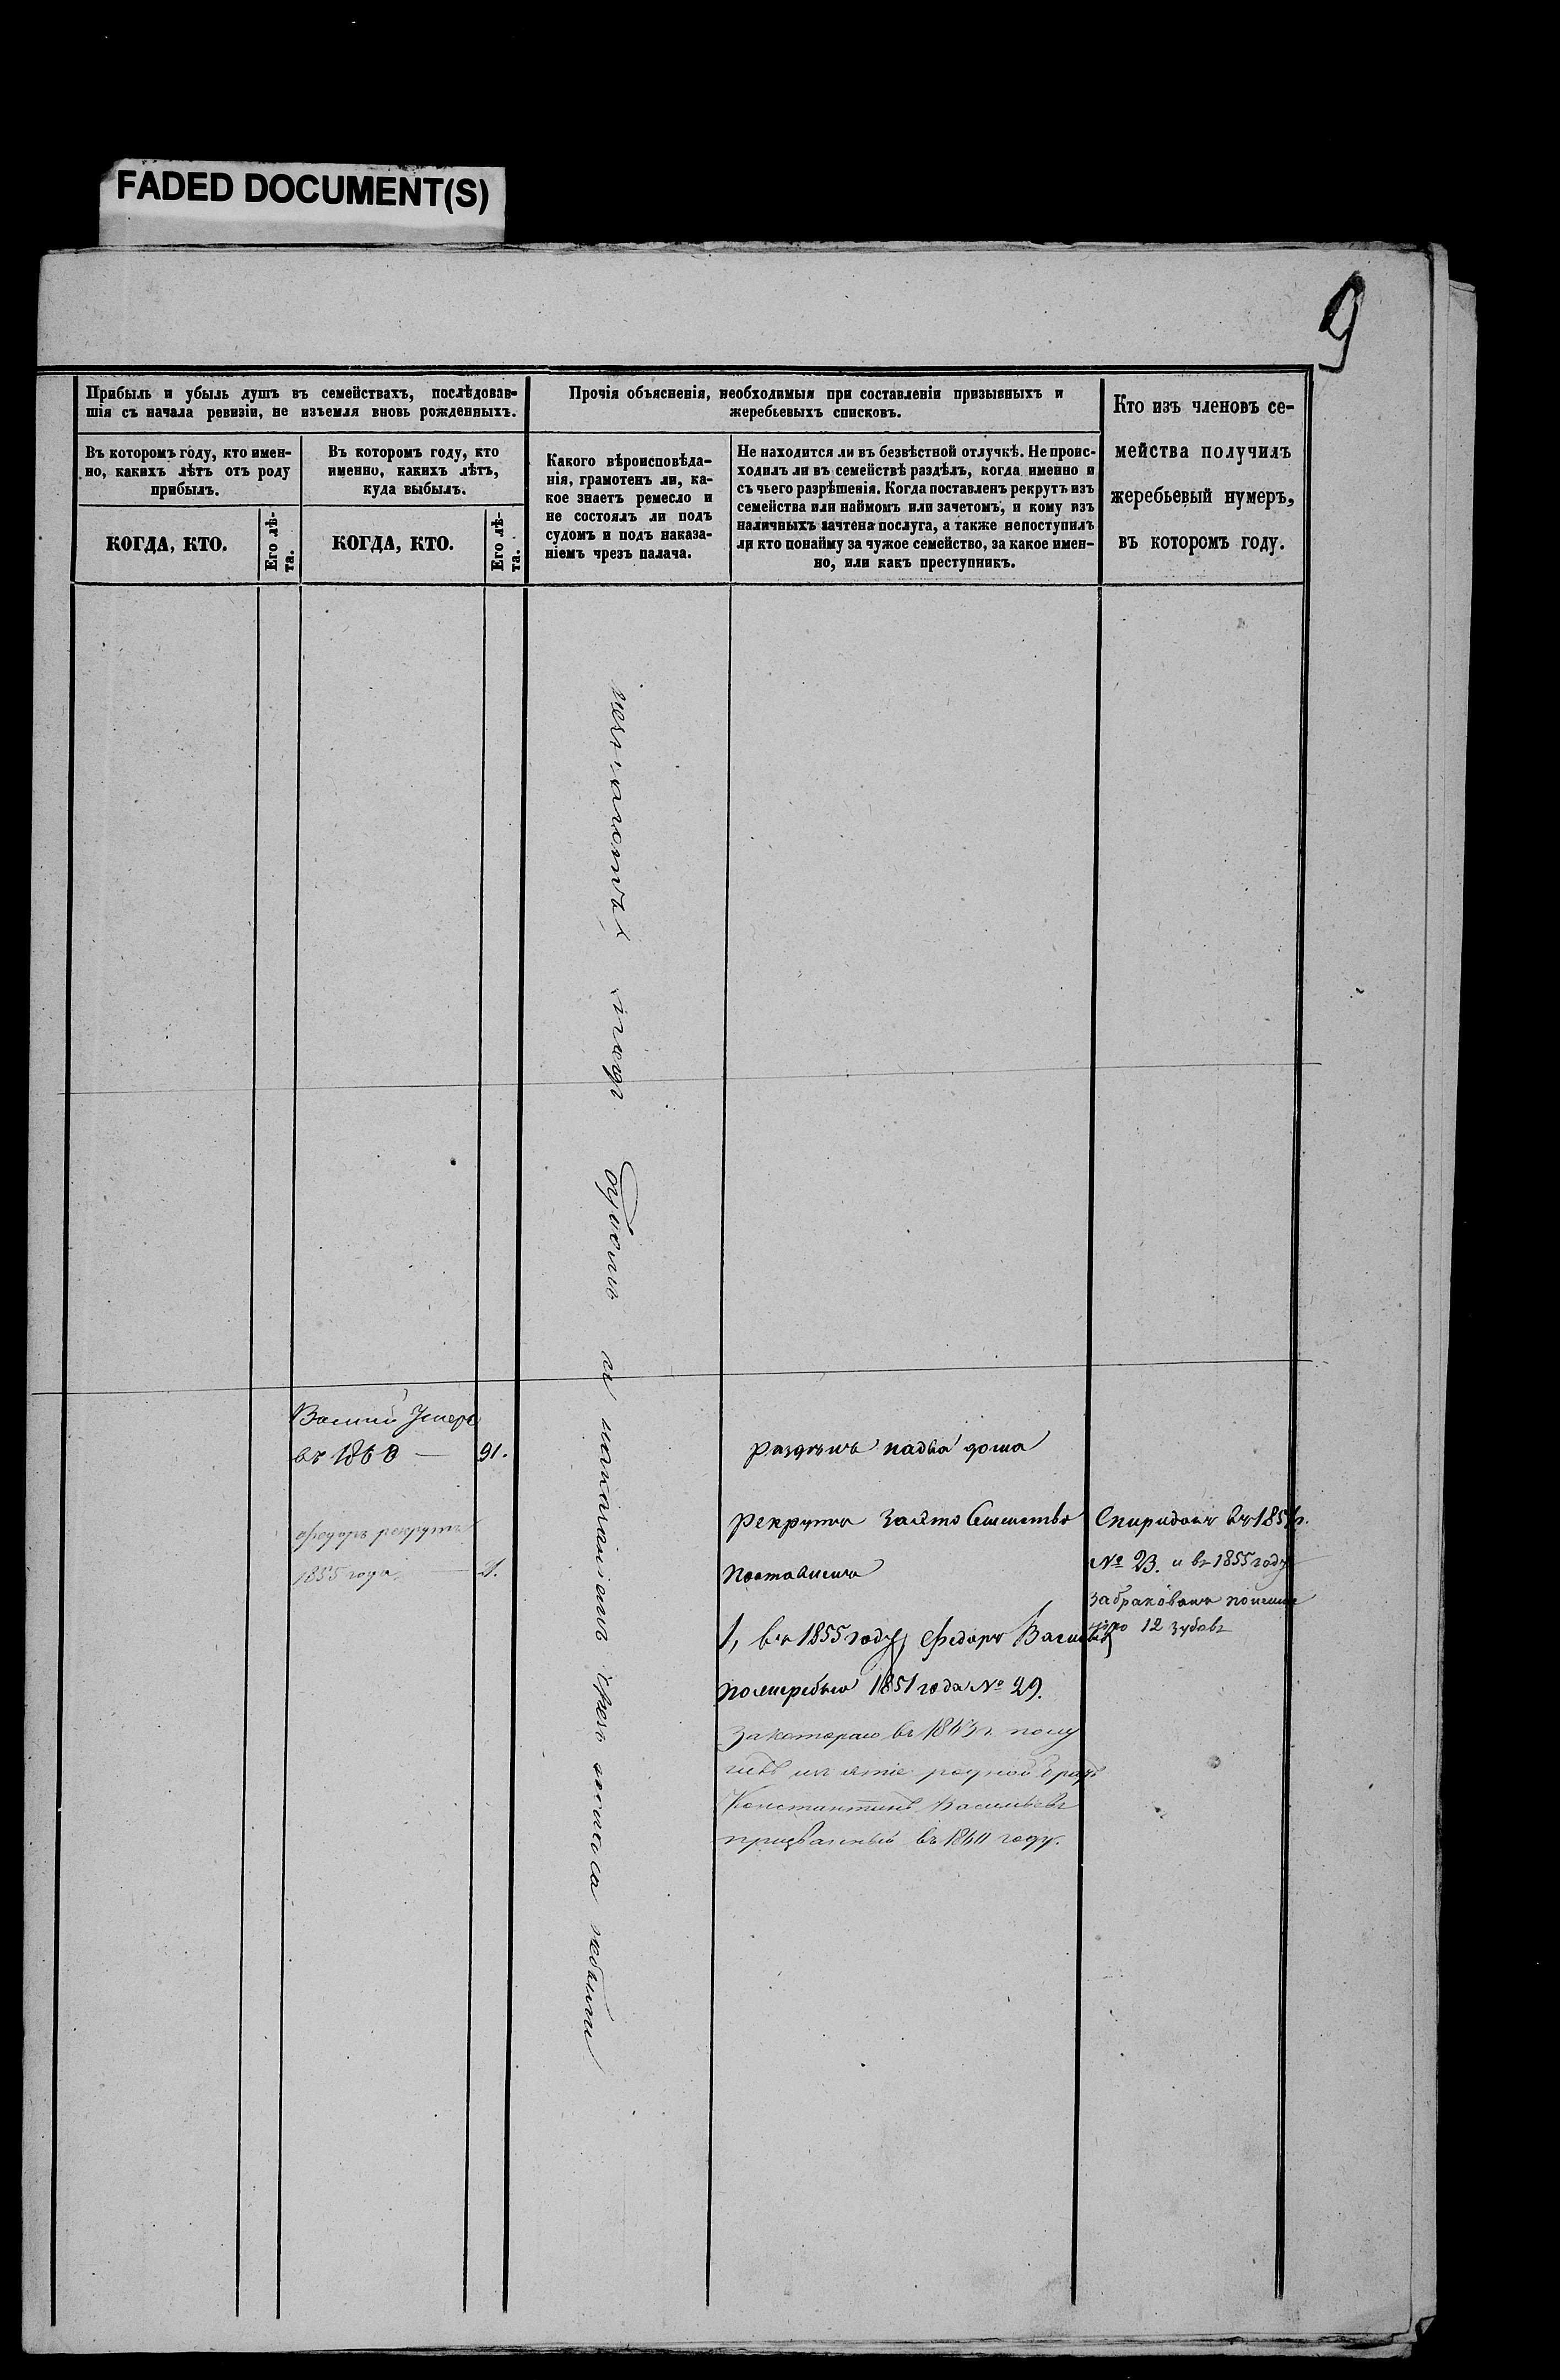 FADED DOCUMENT(S)
9
Прибыль и убыль душъ въ семействахъ, послѣдовав-
шія съ начала ревизіи, не изъемля вновь рожденныхъ.
Въ которомъ году, кто имен-
но, какихъ лѣтъ отъ роду
прибылъ.
КОГДА, КТО.
Его лѣ-
та.
Въ которомъ году, кто
именно, какихъ лѣтъ,
куда выбылъ.
КОГДА, КТО.
Его лѣ-
та.
Прочія объясненія, необходимыя при составленіи призывныхъ и
жеребьевыхъ списковъ.
Какого вѣроисповѣда-
нія, грамотенъ ли, ка-
кое знаетъ ремесло и
не состоялъ ли подъ
судомъ и подъ наказа-
ніемъ чрезъ палача.
Не находится ли въ безвѣстной отлучкѣ. Не проис-
ходилъ ли въ семействѣ раздѣлъ, когда именно и
съ чьего разрѣшенія. Когда поставленъ рекрутъ изъ
семейства или наймомъ или зачетомъ, и кому изъ
наличныхъ зачтена послуга, а также непоступилъ
ли кто понайму за чужое семейство, за какое имен-
но, или какъ преступникъ.
Кто изъ членовъ се-
мейства получилъ
жеребьевый нумеръ,
въ которомъ году.
неграмотны подъ судомъ и наказаніемъ чрезъ небыли
въ 1860 — 91.
раздѣлъ надва дома
федоръ рекрутъ
1855 года — 
рекрута за это Семейство
поставлена
1, въ 1855 году федоръ Васильевъ
пожеребью 1851 года № 29.
закотораго въ 1843 г. полу
родной братъ
Константинъ Васильевъ
призванный въ году.
Спиридонъ въ 185
№ 23. и въ 1855 году
забракованъ
12 зубовъ